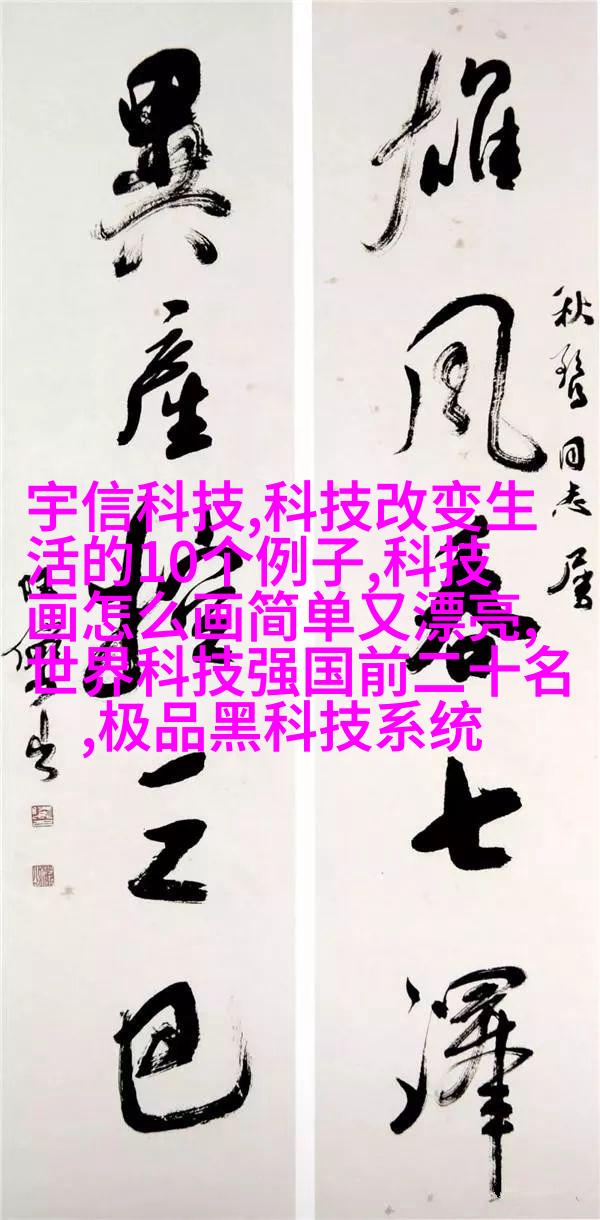 宇信科技,科技改变生
活的10个例子,科技
画怎么画简单又漂亮,
世界科技强国前二十名
,极品黑科技系统
雄風吞七澤
秋同志屬
異產控三巴